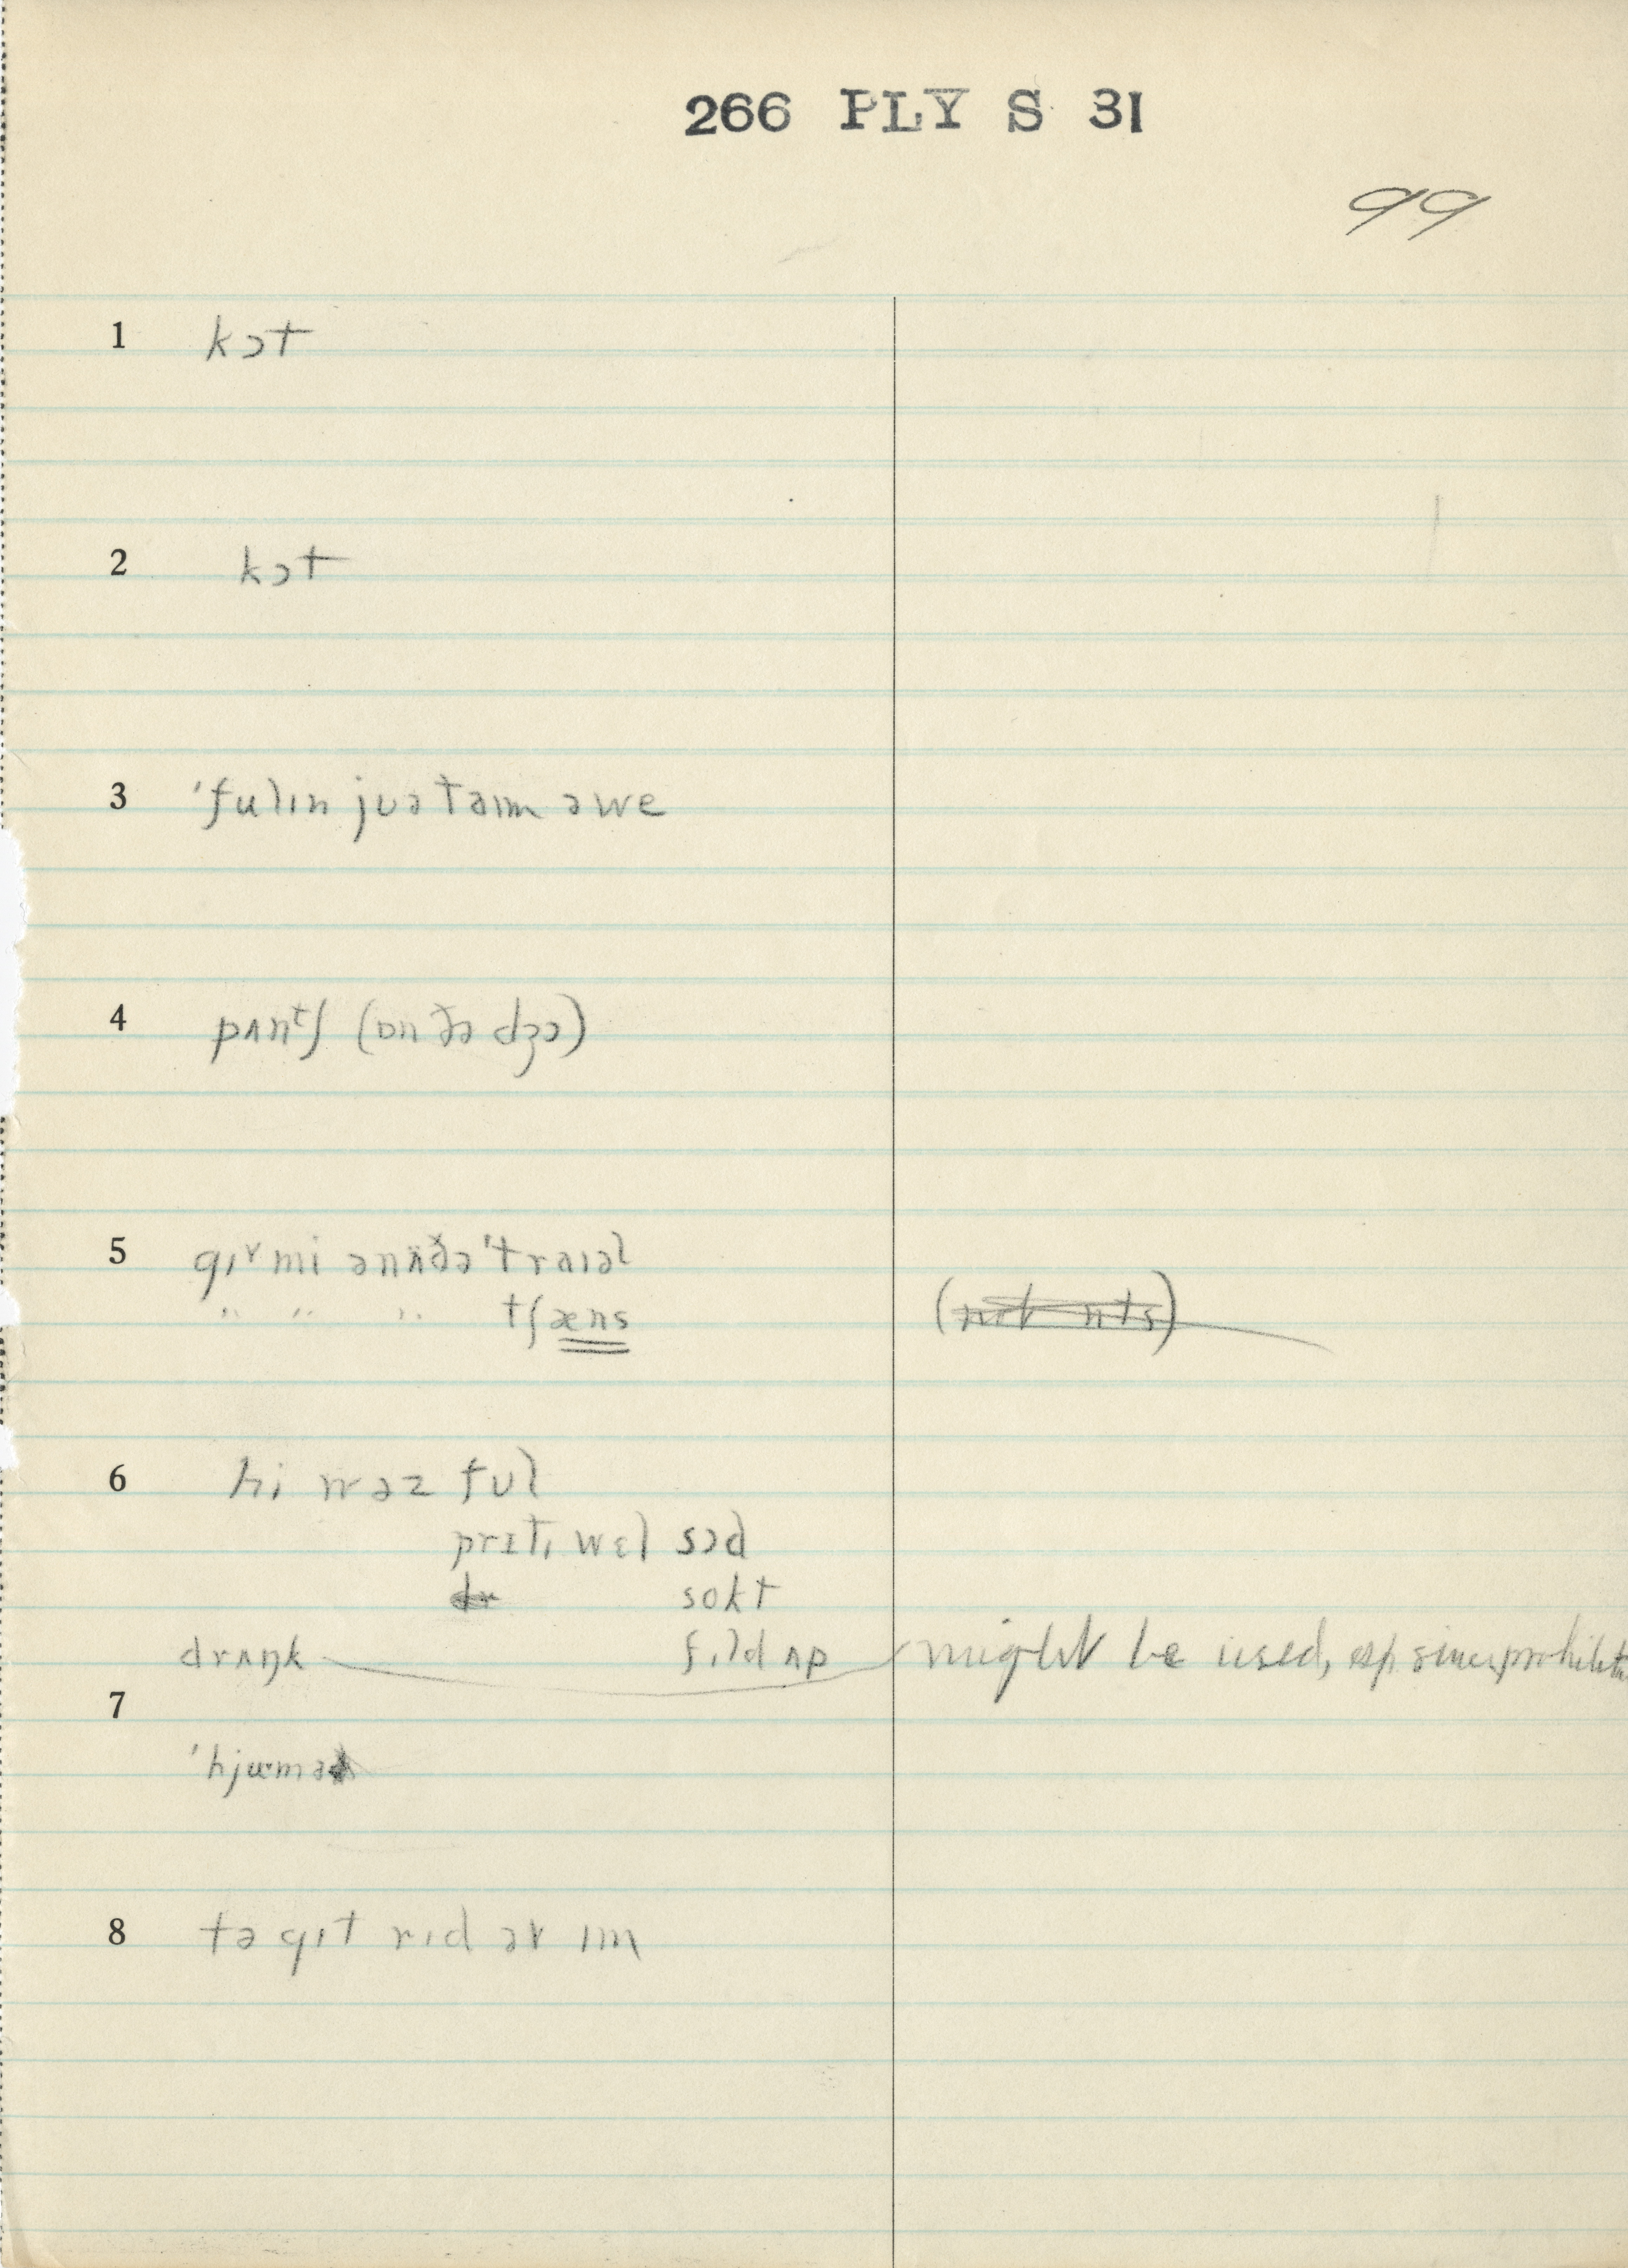 266 PLY S 31
99
1 kɔt
2 kɔt
3 'fulɪn jʊə taɪm əwe
4 pʌnᵗʃ (ɒn ðə dʒɔ)
5 gɪᵛ mi ənʌ̈ðə 'traɪəl
" " " tʃæns
6 hi wəz fʊl
prɪtɪ wɛl sɔd
sokt
drʌŋk fɪld ʌp might be used, esp since prohibiti
7
'hjʊmə
8 tə gɪt rɪd əv ɪm